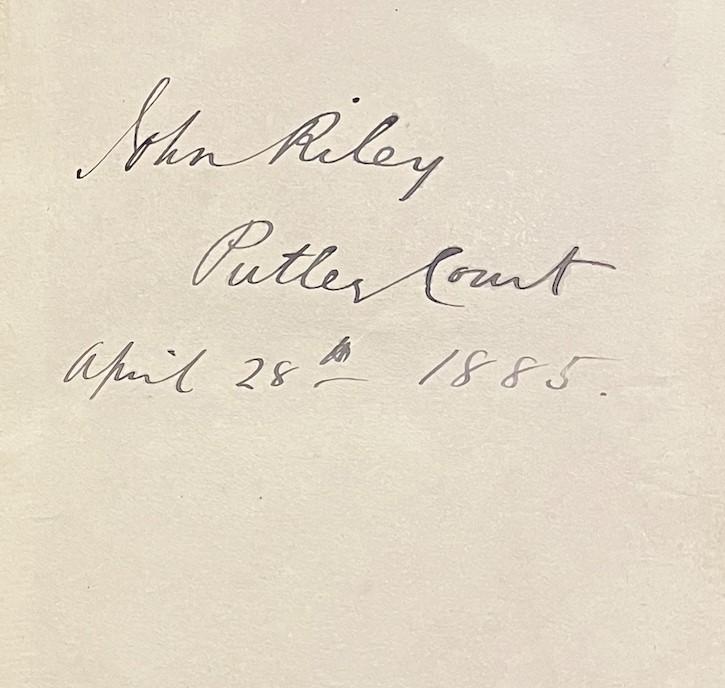 John Riley
Putley Court
April 28th 1885.